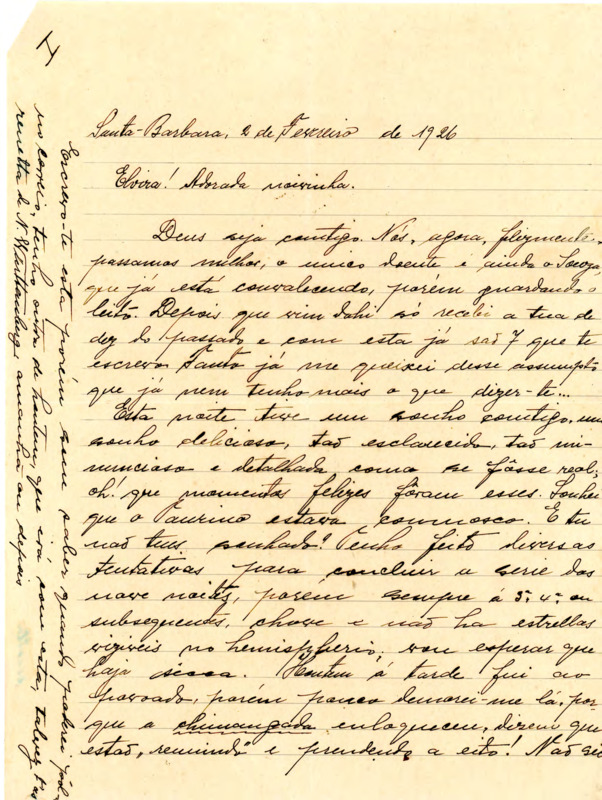 Santa-Barbara, 2 de Fevereiro de 1926
Elvira! Adorada noivinha.
Deus seja comtigo. Nós, agora, felizmente,
passamos melhor, o unico doente é ainda o Souza,
que já está convalecendo, porém guardando o
leito. Depois que vim dahi só recebi a tua de
dez do passado e com esta já saõ 7 que te
escrevo. Tanto já me queixei desse assumpto
que já nem tenho mais o que dizer-te...
Esta noite tive um sonho comtigo, um
sonho delicioso, taõ esclarecido, taõ mi-
nuncioso e detalhado, como se fôsse real;
oh! que momentos felizes fôram esses. Sonhei
que o Taurino estava comnosco. E tu
naõ tens sonhado? Tenho feito diversas
tentativas para concluir a serie das
nove noites, porém sempre á 3ª 4ª ou
subsequentes, chove e naõ ha estrellas
viziveis no hemispherio; vou esperar que
haja secca. Hontem á tarde fui ao
povoado, porém pouco demorei-me lá, por-
que a chimangada enloqueceu, dizem que
estaõ „reunindo" e prendendo a eito! Naõ sei
Escrevo-te esta porém sem saber quando poderei
no correio, tenho outra de hontem, que irá com esta, talvez
remetta de amanha ou depois